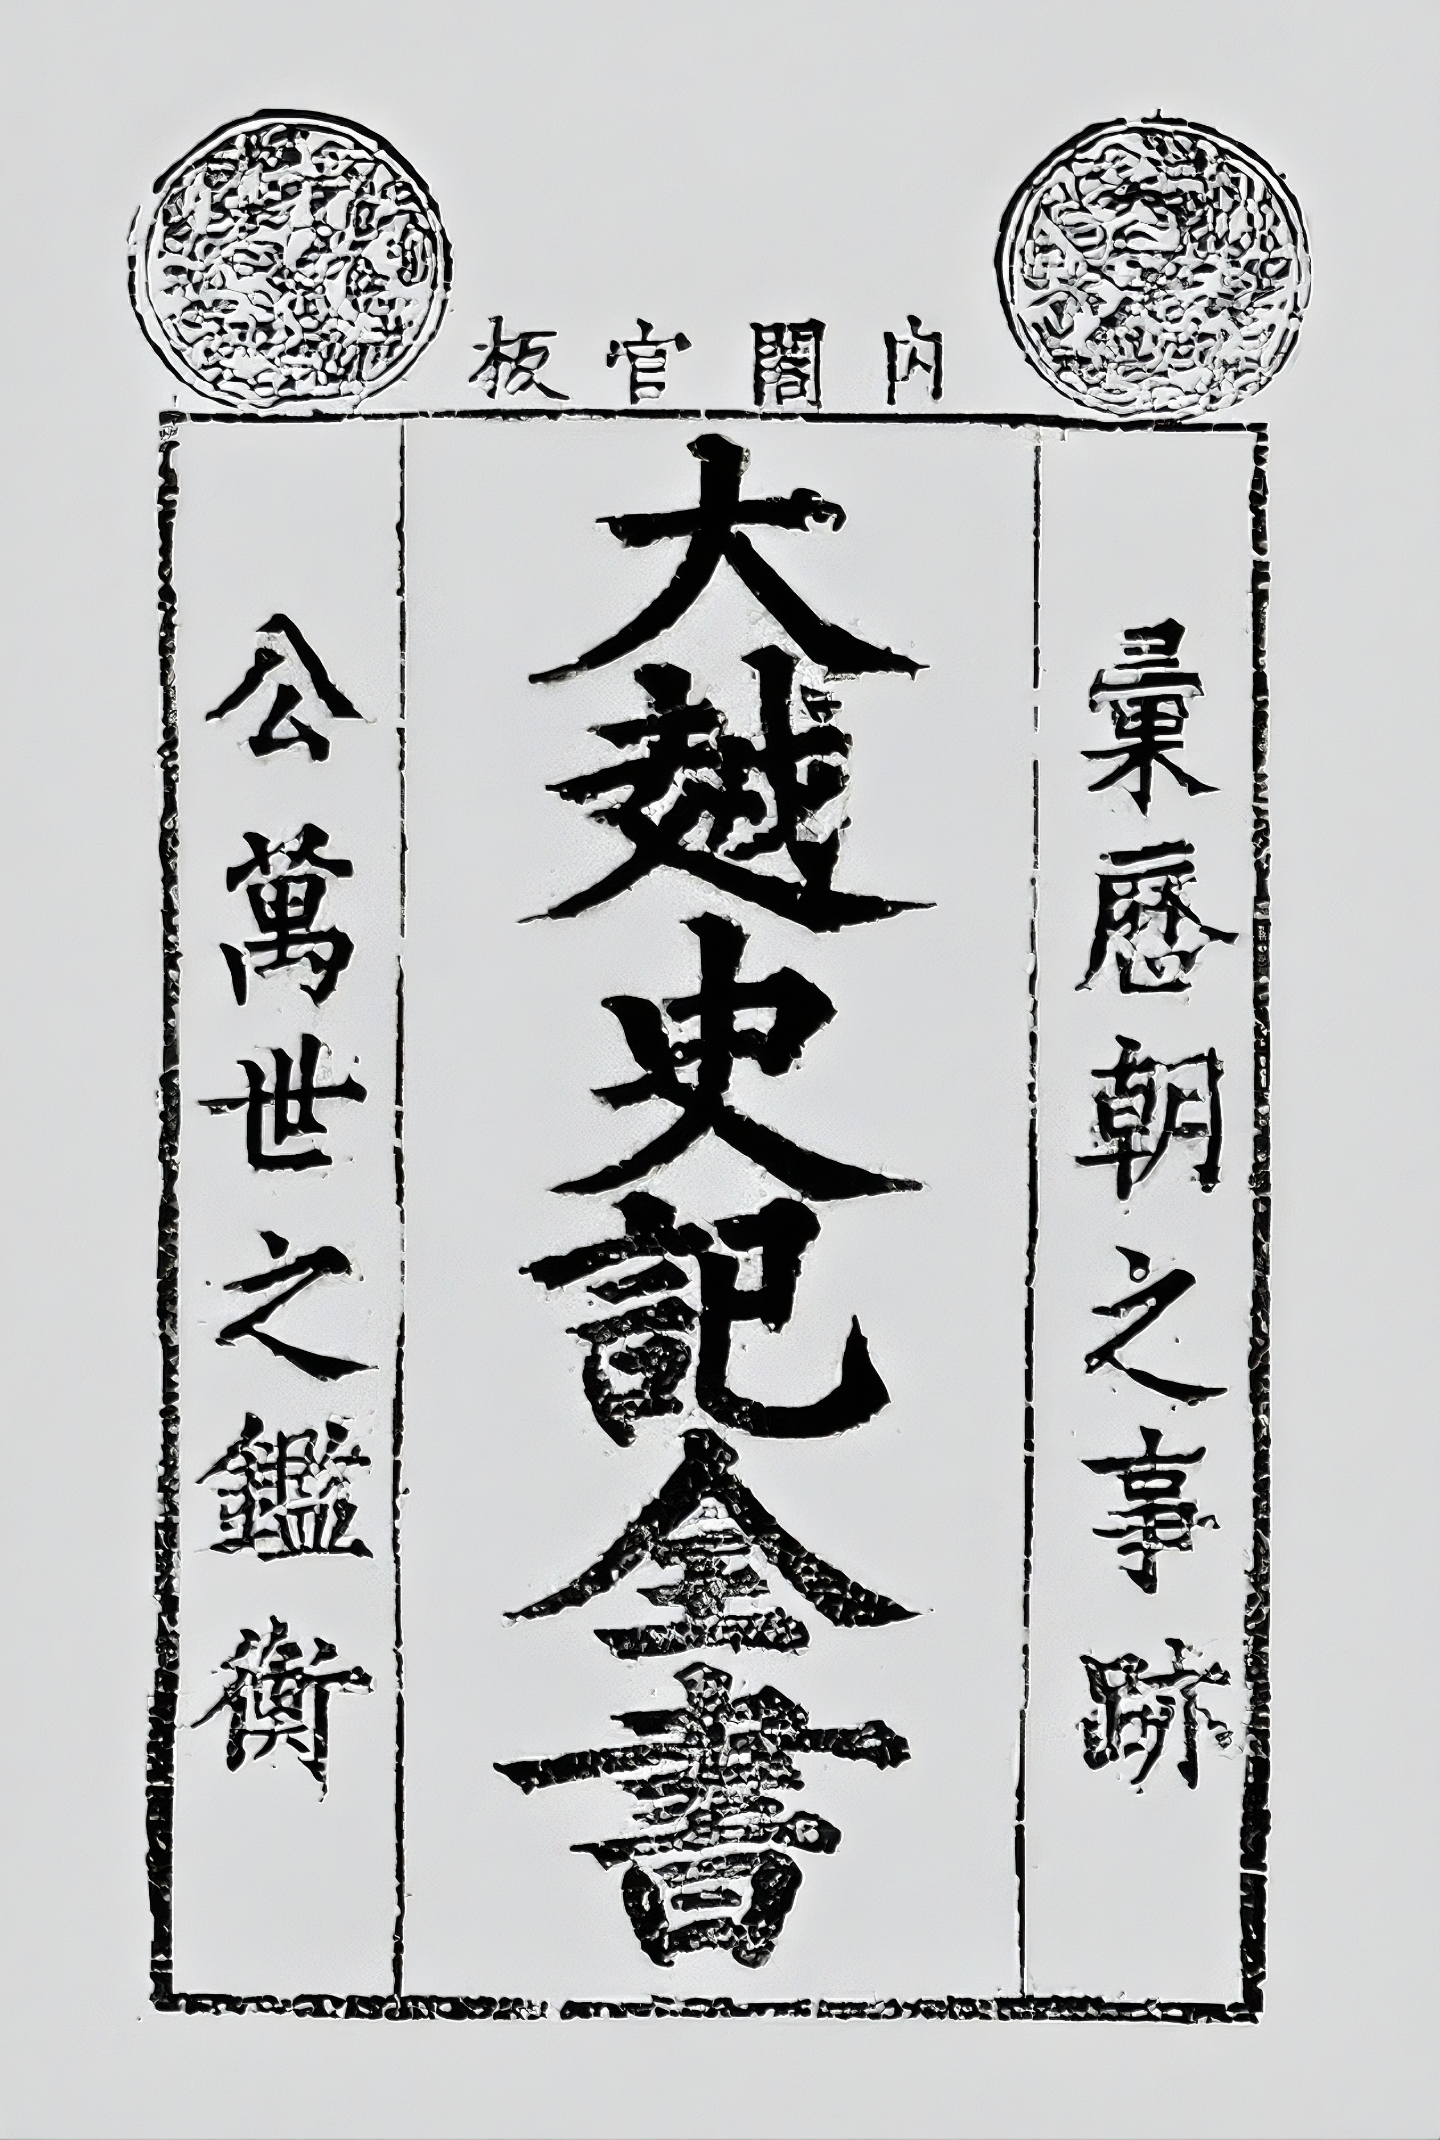 内閣官板
彚歷朝之事跡
大越史記全書
公萬世之鑑衡